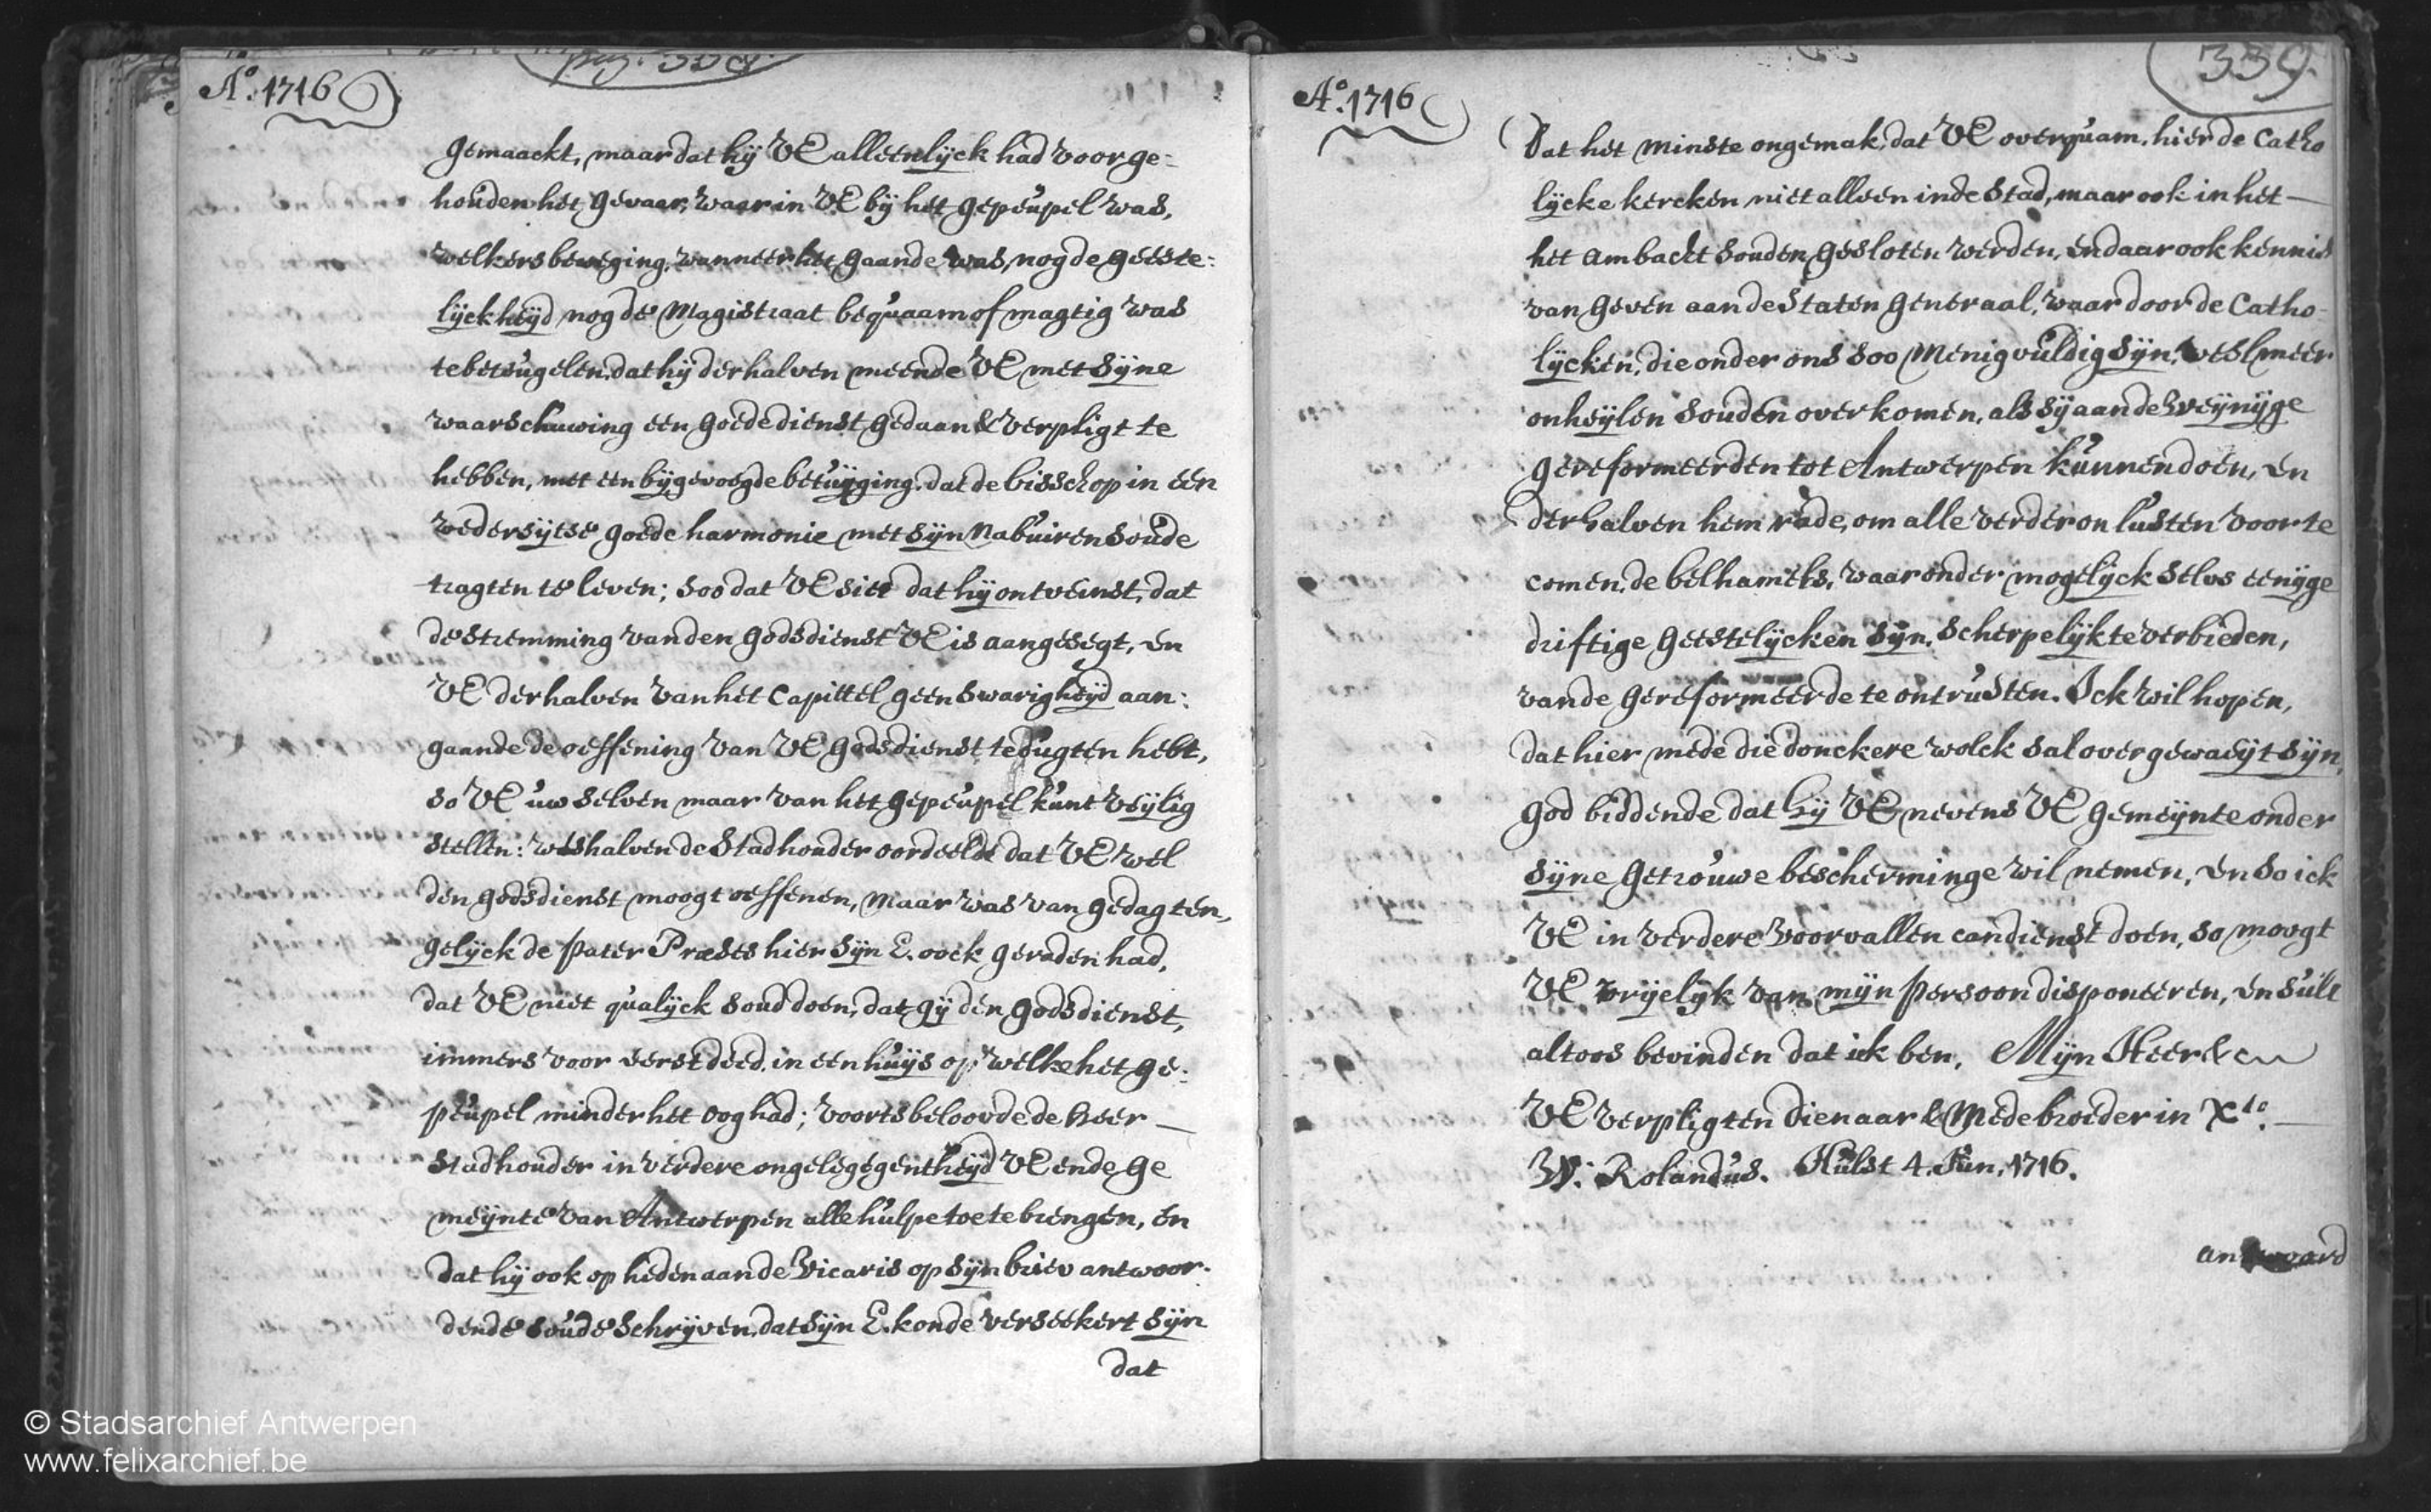 pag. 338.
Ao. 1716
gemaackt, maar dat hij VE alleenlijck had voorge=
houden het gevaar, waar in VE bij het gepeupel was,
welkers beweging, wanneer het gaande was, nog de geeste=
lijckheijd nog de Magistraat bequaam of magtig was
te beteugelen, dat hij derhalven meende VE met sijne
waarschuwing een goede dienst gedaan & verpligt te
hebben, met een bijgevoegde betuijging, dat de bisschop in een
wedersijtse goede harmonie met sijn nabuiren soude
tragten te leven; soo dat VE siet dat hij ontveinst, dat
de stremming van den godsdienst VE is aangesegt, en
VE derhalven van het Capittel geen swarigheijd aan:
gaande de oeffening van VE godsdienst te dugten hebt,
so VE uw selven maar van het gepeupel kunt veijlig
stellen: weshalven de Stadhouder oordeelde dat VE wel
den godsdienst moogt oeffenen, maar was van gedagten,
gelijck de pater Præses hier sijn E. oock geraden had,
dat VE niet qualijck soud doen, dat gij den godsdienst,
immers voor eerst deed, in een huijs op welke het ge:
peupel minder het oog had; voorts beloovde de heer —
stadhouder in verdere ongelegegentheijd VE en de ge
meijnte van Antwerpen alle hulpe toe te brengen, en
dat hij ook op heden aan de Vicaris op sijn briev antwoor.
dende soude schrijven, dat sijn E. konde verseekert sijn
dat
339.
Ao. 1716
Dat het minste ongemak, dat VE overquam, hier de Catho
lijcke kercken niet alleen in de Stad, maar ook in het —
het ambacht souden gesloten werden, en daar ook kennis
van geven aan de Staten Generaal, waar door de Catho=
lijcken, die onder ons soo menigvuldig sijn, veel meer
onheijlen souden overkomen, als sij aan de weijnijge
gereformeerden tot Antwerpen kunnen doen, en
derhalven hem rade, om alle verder onlusten voor te
comen, de belhamels, waar onder mogelijck selvs eenijge
driftige geestelijcken sijn, scherpelijk te verbieden,
van de gereformeerde te ontrusten. Ick wil hopen,
dat hier mede die donckere wolck sal overgewaeijt sijn,
god biddende dat hij VE nevens VE gemeijnte onder
sijne getrouwe bescherminge wil nemen, en so ick
VE in verdere voorvallen can dienst doen, so moogt
VE vrijelijk van mijn persoon disponeeren, en sult
altoos bevinden dat ick ben, Mijn Heer &c
VE verpligten dienaar & Medebroeder in Xto. —
W: Rolandus. Hulst 4. Jun. 1716.
antwoord
© Stadsarchief Antwerpen
www.felixarchief.be